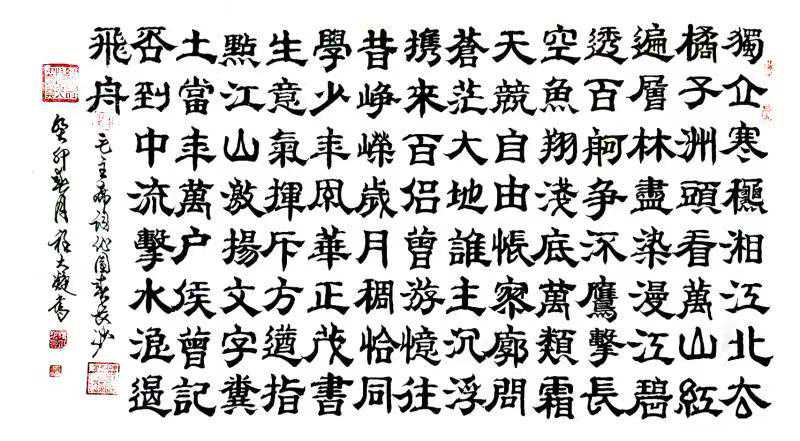 獨立寒穐湘江北去
橘子洲頭看萬山紅
遍層林盡染漫江碧
透百舸争流鷹擊長
空魚翔淺底萬類霜
天競自由悵寥廓問
蒼茫大地誰主沉浮
携來百侣曾游憶往
昔崢嶸歲月稠恰同
學少年風華正茂書
生意氣揮斥方遒指
點江山激揚文字糞
土當年萬户侯曾記
否到中流擊水浪遏
飛舟
毛主席詞沁園春長沙
癸卯春月書